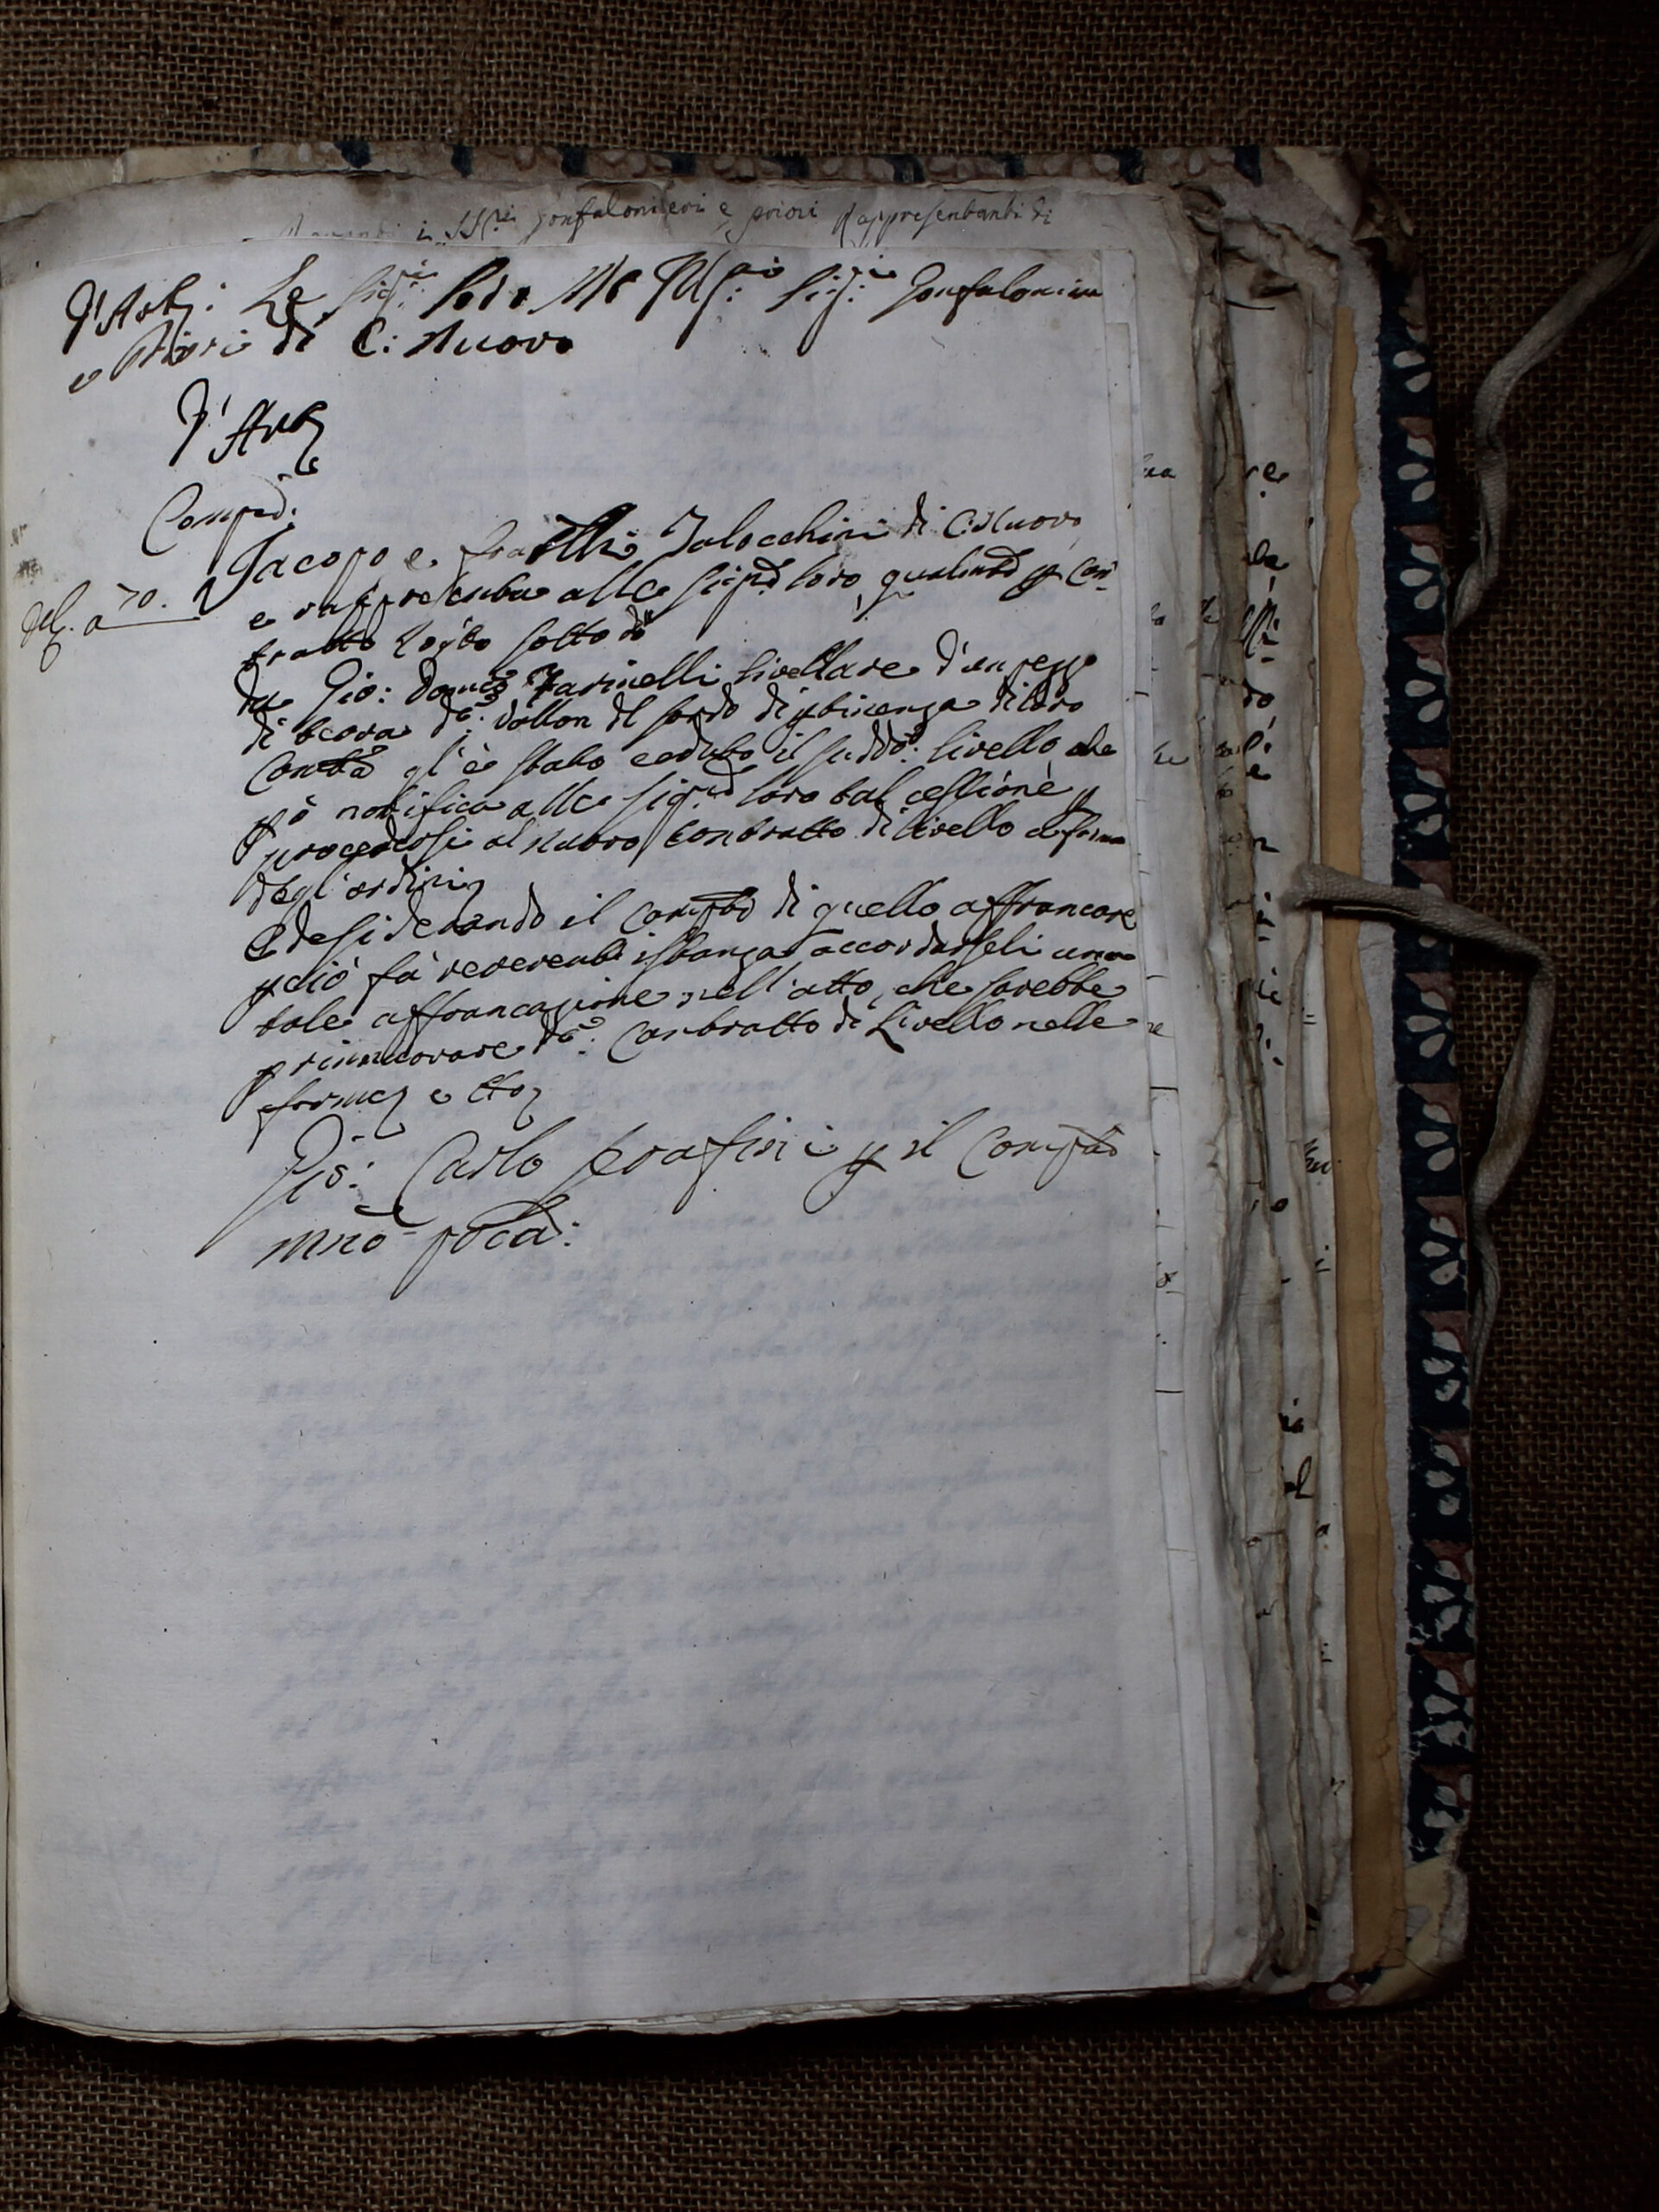 i SS.ri Gonfalonieri e priori Rappresentanti di
Le Sig.rie Loro Ill.mi Sig.ri Gonfaloniere
e Priori di C: Nuovo
Comped:
Jacopo e fratelli Talocchini di C: Nuovo
e rappresenta alle Sig.rie loro, qualmte p con-
tratto sotto dì
da Gio: Domco Farinelli livellare d'un pezzo
di terra do: di loro
Comtà gl'è stato ceduto il suddo: livello, che
pò notifica alle Sig.rie loro tal cessione p
procedersi al nuovo contratto di livello a forma
degl'ordini
e desiderando il Compto di quello affrancare
p ciò fà reverente istanza accordarseli una
tale affrancazione nell'atto, che sarebbe
p rinnuovare do: Contratto di Livello nelle
forme e
Gio: Carlo Serafini p il Compto
mno